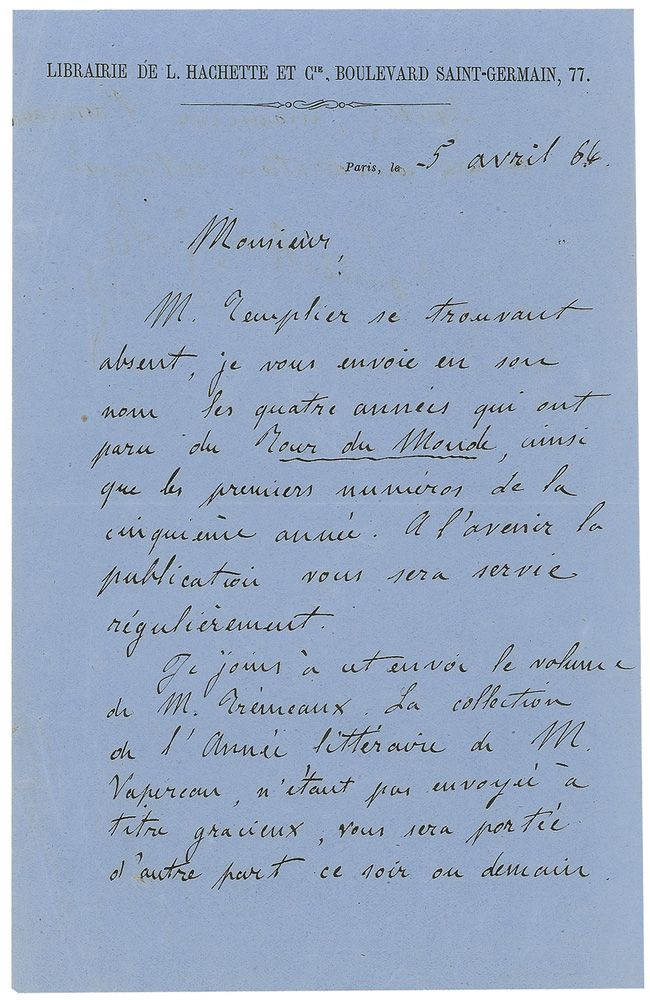 LIBRAIRIE DE L. HACHETTE ET Cⁱᴱ, BOULEVARD SAINT-GERMAIN, 77.
Paris, le 5 avril 64.
Monsieur,
M. Templier se trouvant
absent, je vous envoie en son
nom les quatre années qui ont
paru du Tour du Monde, ainsi
que les premiers numéros de la
cinquième année. A l'avenir la
publication vous sera servie
régulièrement.
Je joins à cet envoi le volume
de M. Trémeaux. La collection
de l'Année littéraire de M.
Vapereau, n'étant pas envoyée à
titre gracieux, vous sera portée
d'autre part ce soir ou demain